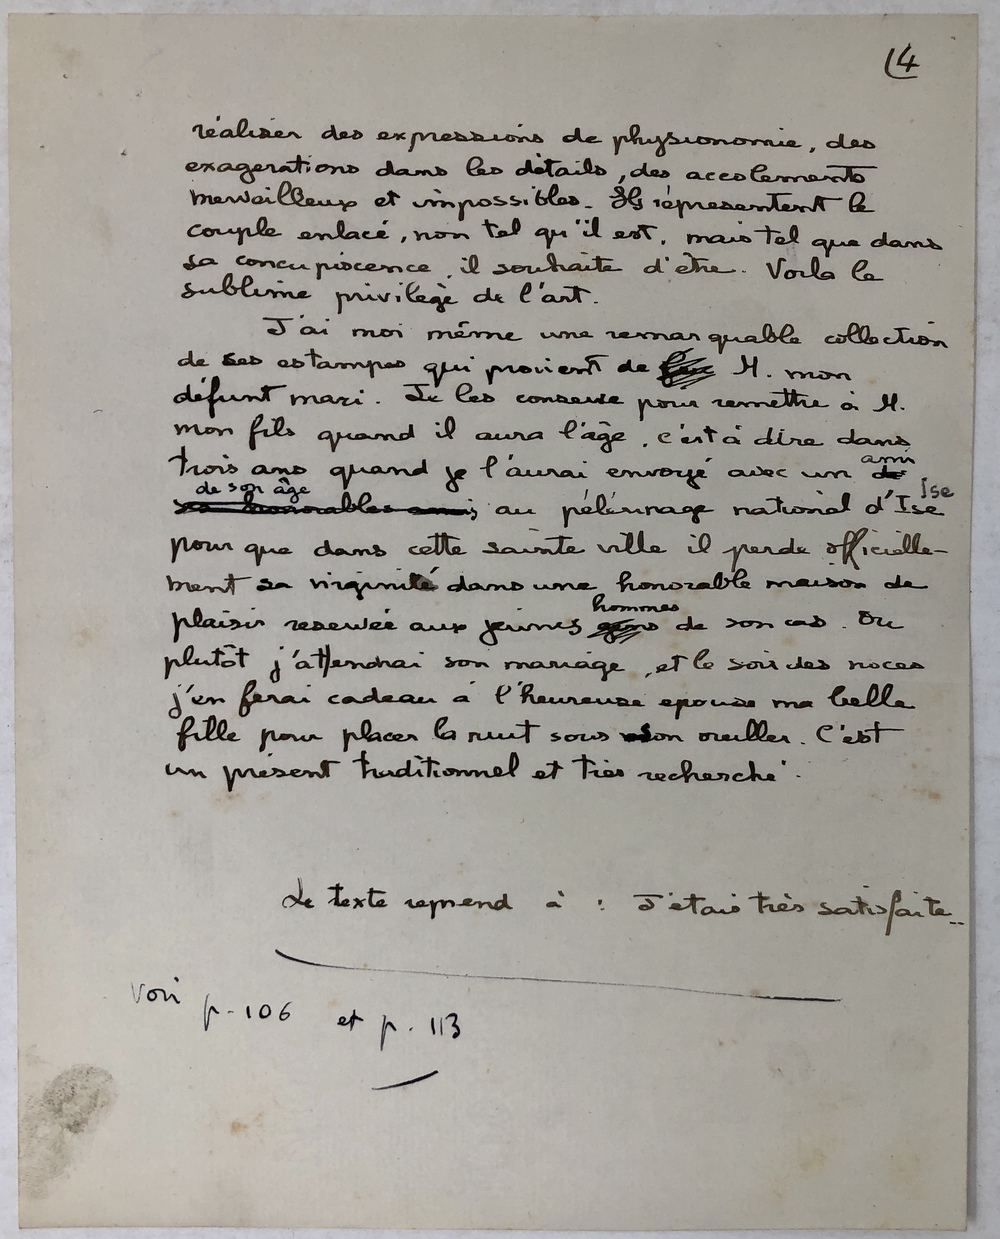 (4
réaliser des expressions de physionomie, des
exagerations dans les détails, des accolements
merveilleux et impossibles. Ils réprésentent le
couple enlacé, non tel qu'il est, mais tel que dans
sa concupiscence, il souhaite d'être. Voila le
sublime privilège de l'art.
J'ai moi même une remarquable collection
de ses estampes qui provient de M. mon
défunt mari. Je les conserve pour remettre à M.
mon fils quand il aura l'âge, c'est à dire dans
trois ans quand je l'aurai envoyé avec un ami
de son âge au pélérinage national d'Ise Ise
pour que dans cette sainte ville il perde officielle-
ment sa virginité dans une honorable maison de
plaisir reservée aux jeunes hommes de son cas. Ou
plutôt j'attendrai son mariage, et le soir des noces
j'en ferai cadeau à l'heureuse epouse ma belle
fille pour placer la nuit sous son oreiller. C'est
un présent traditionnel et très recherché.
Le texte reprend à : J'étais très satisfaite..
voir p. 106 et p. 113